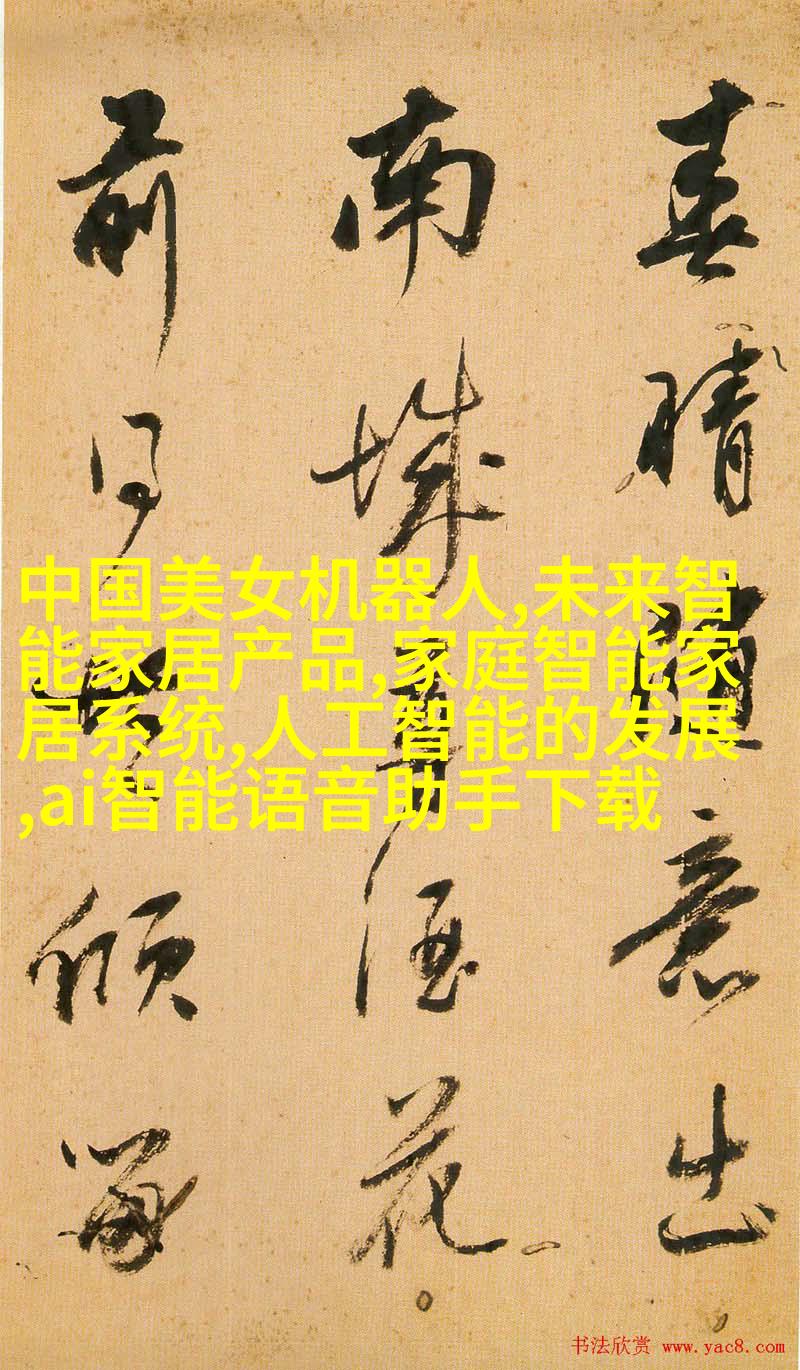 晴隨意出
南城酒花
前傾
中国美女机器人,未来智
能家居产品,家庭智能家
居系统,人工智能的发展
,ai智能语音助手下载
书法欣赏 www.yac8.com